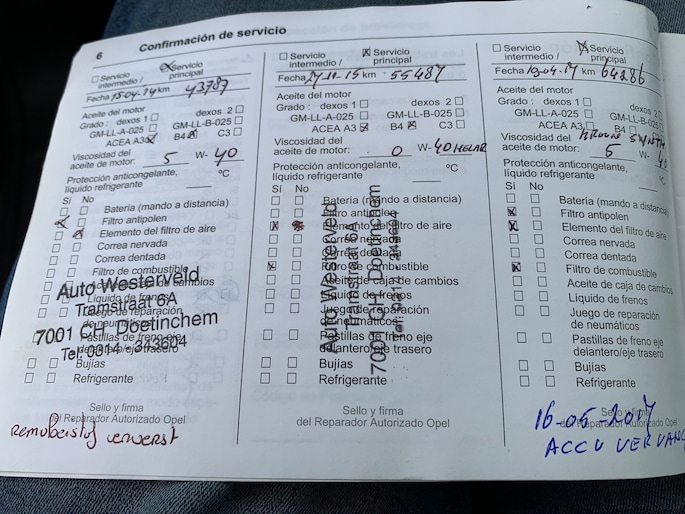 6 Confirmación de servicio
Servicio intermedio / Servicio principal
Fecha 15-04-14 km 43787
Aceite del motor
Grado : dexos 1 dexos 2
GM-LL-A-025 GM-LL-B-025
ACEA A3 B4 C3
Viscosidad del
aceite de motor: 5 W- 40
Protección anticongelante,
líquido refrigerante °C
Sí No
Batería (mando a distancia)
Filtro antipolen
Elemento del filtro de aire
Correa nervada
Correa dentada
Filtro de combustible
Aceite de caja de cambios
Líquido de frenos
Juego de reparación
de neumáticos
Pastillas de freno eje
delantero/eje trasero
Bujías
Refrigerante
Auto Westerveld
Tramstraat 6A
7001 CH Doetinchem
Tel. 0314 - 343604
Sello y firma
del Reparador Autorizado Opel
Remvloeistof ververst
Servicio intermedio / Servicio principal
Fecha km 55487
Aceite del motor
Grado : dexos 1 dexos 2
GM-LL-A-025 GM-LL-B-025
ACEA A3 B4 C3
Viscosidad del
aceite de motor: 0 W- 40
Protección anticongelante,
líquido refrigerante °C
Sí No
Batería (mando a distancia)
Filtro antipolen
Elemento del filtro de aire
Correa nervada
Correa dentada
Filtro de combustible
Aceite de caja de cambios
Líquido de frenos
Juego de reparación
de neumáticos
Pastillas de freno eje
delantero/eje trasero
Bujías
Refrigerante
Auto Westerveld
Tramstraat 6A
7001 CH Doetinchem
Sello y firma
del Reparador Autorizado Opel
Servicio intermedio / Servicio principal
Fecha 19-04-17 km 64286
Aceite del motor
Grado : dexos 1 dexos 2
GM-LL-A-025 GM-LL-B-025
ACEA A3 B4
Viscosidad del
aceite de motor: 5 W- 40
Protección anticongelante,
líquido refrigerante °C
Sí No
Batería (mando a distancia)
Filtro antipolen
Elemento del filtro de aire
Correa nervada
Correa dentada
Filtro de combustible
Aceite de caja de cambios
Líquido de frenos
Juego de reparación
de neumáticos
Pastillas de freno eje
delantero/eje trasero
Bujías
Refrigerante
Sello y firma
del Reparador Autorizado Opel
16-05-2017
ACCU VERVANG